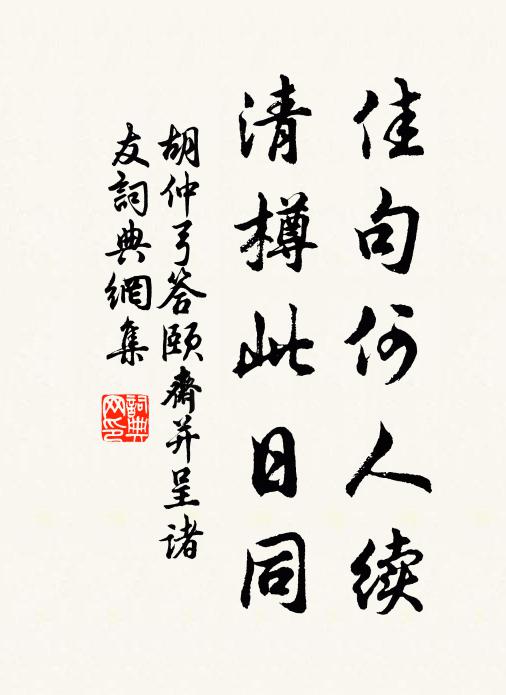 佳句何人续
清樽此日同
胡仲弓答颐斋并呈诸
友詞典網集
詞典
网印